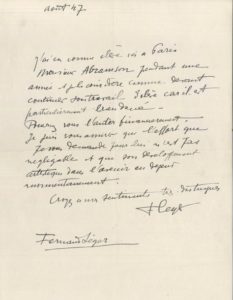 août 47
J'ai eu comme élève ici à Paris
Monsieur Abramson pendant une
année et je considère comme devant
continuer son travail. Celà car il est
particulièrement
Pouvez vous l'aider financièrement.
Je puis vous assurer que l'effort que
je vous demande pour lui n'est pas
négligeable et que son développement
artistique dans l'avenir en dépend
Croyez à mes sentiments très distingués
FLeger
Fernand Léger